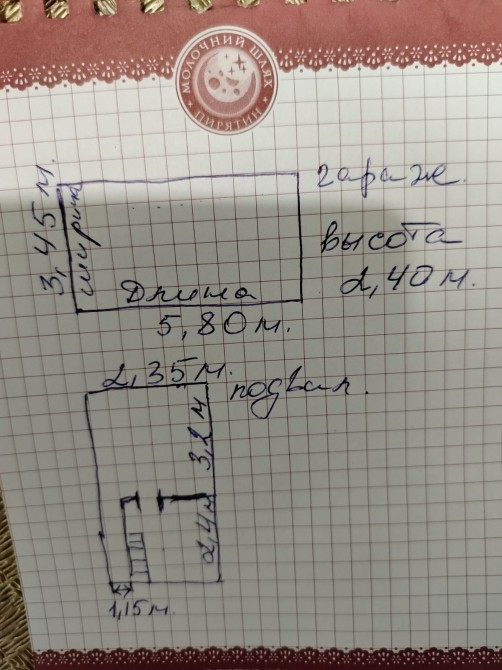 МОЛОЧНИЙ ШЛЯХ
ПИРЯТИН
гараж.
3,45 м.
ширина
высота
2,40 м.
Длина
5,80 м.
2,35 м.
подвал.
3,2 м
2,4 м
1,15 м.